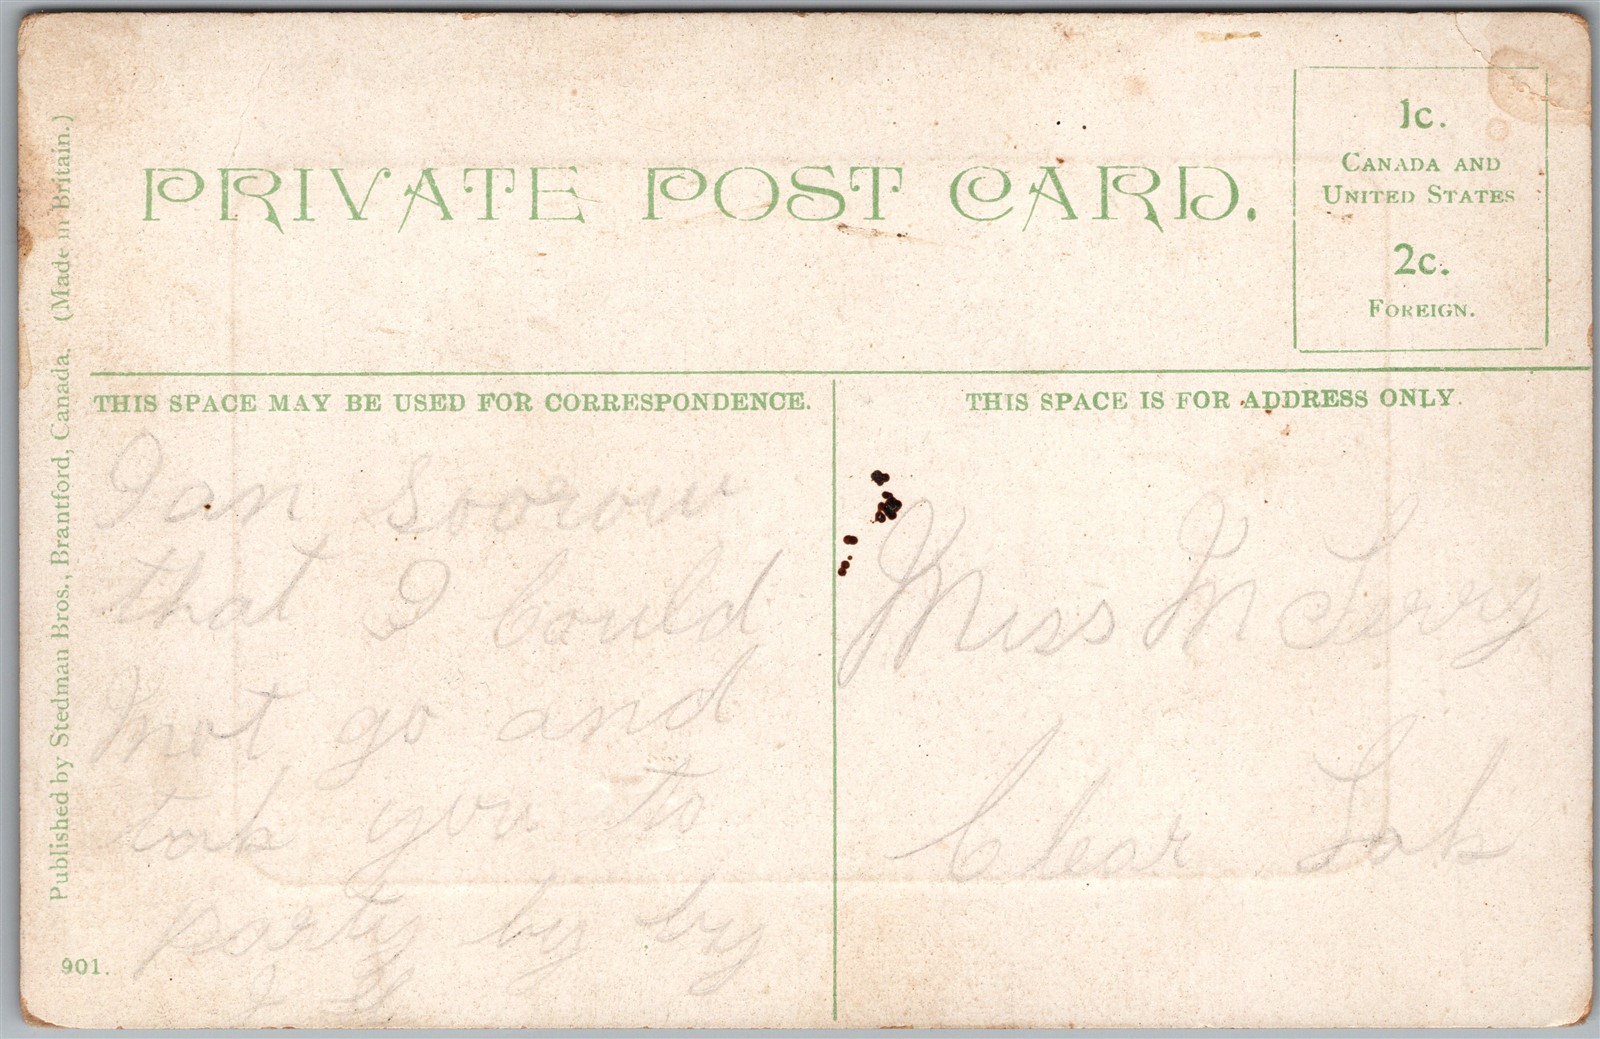 PRIVATE POST CARD.
1c.
CANADA AND
UNITED STATES
2c.
FOREIGN.
Published by Stedman Bros., Brantford, Canada. (Made in Britain.)
THIS SPACE MAY BE USED FOR CORRESPONDENCE.
I an Soorow
that I Could
not go and
tak you to
party by by
THIS SPACE IS FOR ADDRESS ONLY.
Miss
Clear Lak
901.